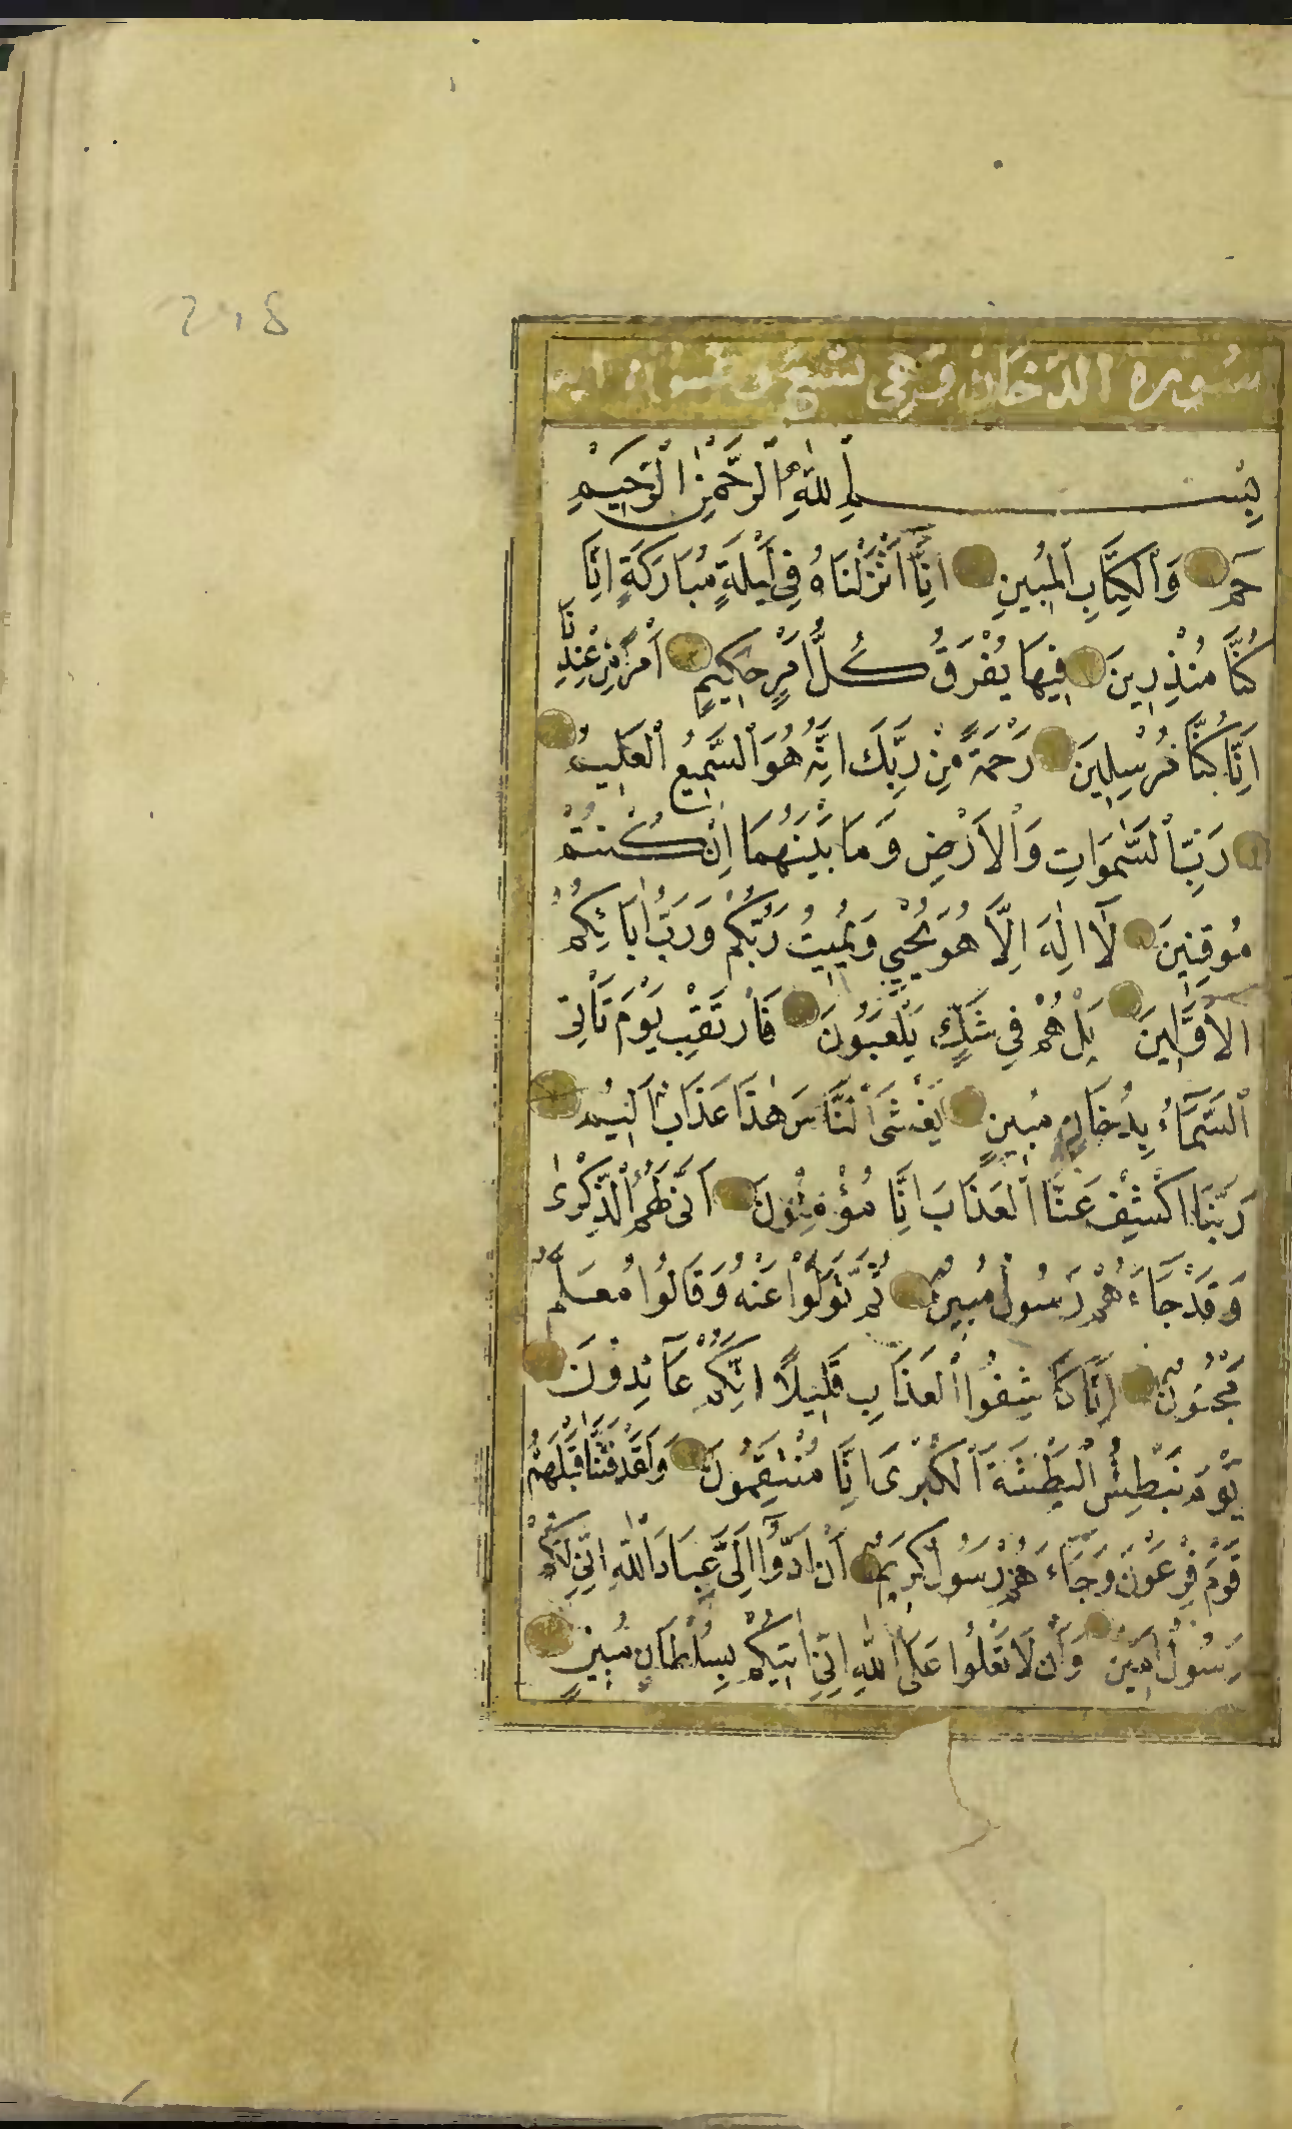 218
سورة الدخان وهي تسع وخمسون اية
بِسْمِ اللّٰهِ الرَّحْمٰنِ الرَّحِيمِ
حٰم وَالْكِتَابِ الْمُبِينِ اِنَّا اَنْزَلْنَاهُ فِي لَيْلَةٍ مُبَارَكَةٍ اِنَّا
كُنَّا مُنْذِرِينَ فِيهَا يُفْرَقُ كُلُّ اَمْرٍ حَكِيمٍ اَمْرًا مِنْ عِنْدِنَا
اِنَّا كُنَّا مُرْسِلِينَ رَحْمَةً مِنْ رَبِّكَ اِنَّهُ هُوَ السَّمِيعُ الْعَلِيمُ
رَبِّ السَّمٰوَاتِ وَالْاَرْضِ وَمَا بَيْنَهُمَا اِنْ كُنْتُمْ
مُوقِنِينَ لَا اِلٰهَ اِلَّا هُوَ يُحْيِي وَيُمِيتُ رَبُّكُمْ وَرَبُّ اٰبَائِكُمُ
الْاَوَّلِينَ بَلْ هُمْ فِي شَكٍّ يَلْعَبُونَ فَارْتَقِبْ يَوْمَ تَأْتِي
السَّمَاءُ بِدُخَانٍ مُبِينٍ يَغْشَى النَّاسَ هٰذَا عَذَابٌ اَلِيمٌ
رَبَّنَا اكْشِفْ عَنَّا الْعَذَابَ اِنَّا مُؤْمِنُونَ اَنّٰى لَهُمُ الذِّكْرٰى
وَقَدْ جَاءَهُمْ رَسُولٌ مُبِينٌ ثُمَّ تَوَلَّوْا عَنْهُ وَقَالُوا مُعَلَّمٌ
مَجْنُونٌ اِنَّا كَاشِفُوا الْعَذَابِ قَلِيلًا اِنَّكُمْ عَائِدُونَ
يَوْمَ نَبْطِشُ الْبَطْشَةَ الْكُبْرَى اِنَّا مُنْتَقِمُونَ وَلَقَدْ فَتَنَّا قَبْلَهُمْ
قَوْمَ فِرْعَوْنَ وَجَاءَهُمْ رَسُولٌ كَرِيمٌ اَنْ اَدُّوا اِلَيَّ عِبَادَ اللّٰهِ اِنِّي لَكُمْ
رَسُولٌ اَمِينٌ وَاَنْ لَا تَعْلُوا عَلَى اللّٰهِ اِنِّي اٰتِيكُمْ بِسُلْطَانٍ مُبِينٍ